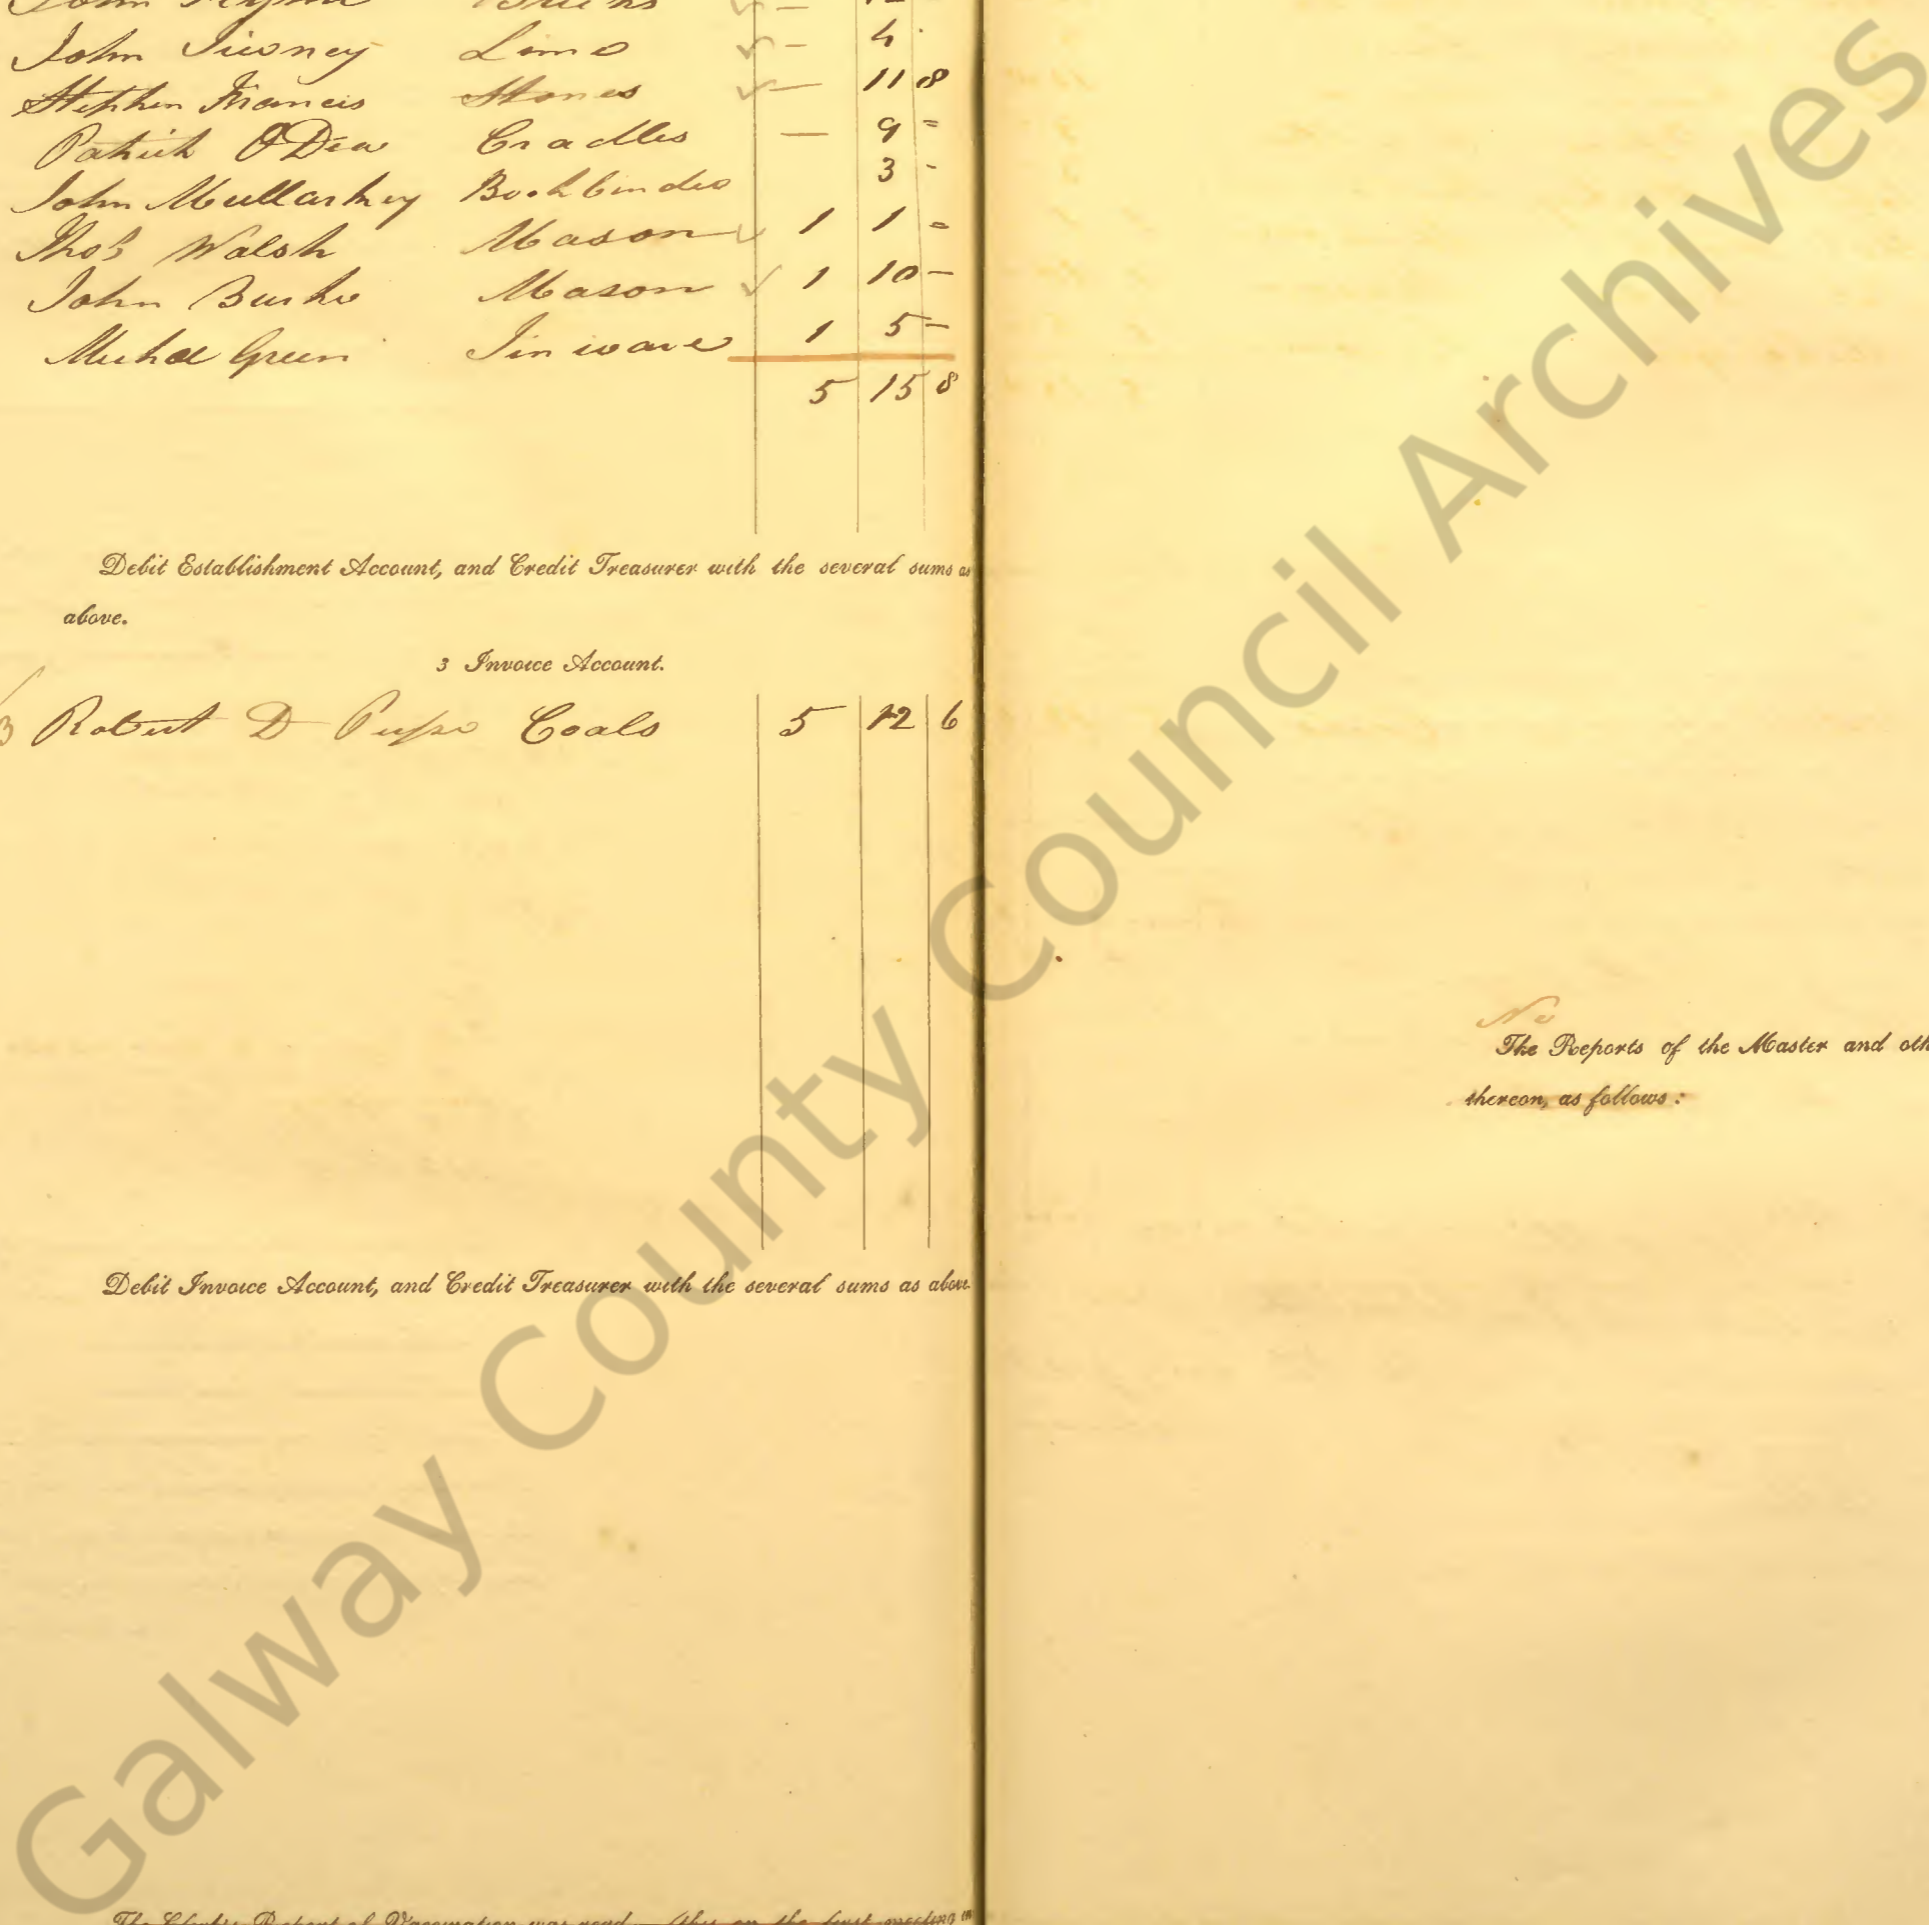 John
John Tierney Lime - 4
Stephen Francis Stones - 11 8
Patrick O'Dea Cradles - 9 =
John Mullarkey Bookbinder 3 -
Thos Walsh Mason 1 1 =
John Burke Mason 1 10 -
Michl Green Tinware 1 5 -
5 15 8
Debit Establishment Account, and Credit Treasurer with the several sums as
above.
3 Invoice Account.
Robert D Coals 5 12 6
Debit Invoice Account, and Credit Treasurer with the several sums as above
The Clerk's Report of Vaccination was read—(this on the first meeting in
No
The Reports of the Master and oth
thereon, as follows:
Galway County Council Archives